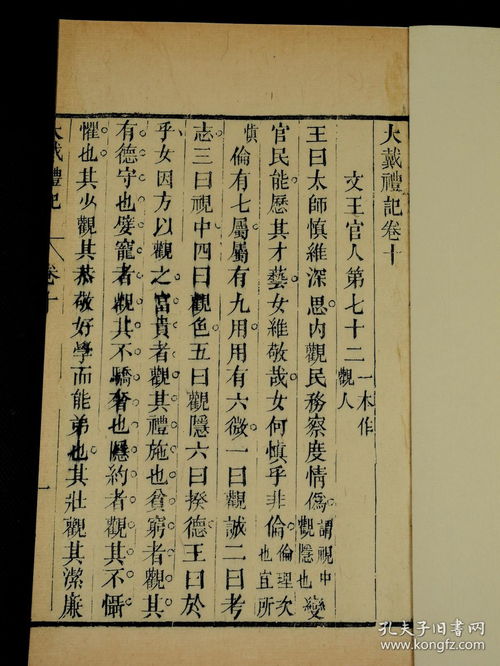 大戴禮記卷十
文王官人第七十二一本作觀人
王曰太師慎維深思內觀民務察度情僞謂視中觀隱也變
官民能歷其才藝女維敬哉女何慎乎非倫倫理次也宜所
慎倫有七屬屬有九用用有六微一曰觀誠二曰考
志三曰視中四曰觀色五曰觀隱六曰揆德王曰於
乎女因方以觀之富貴者觀其禮施也貧窮者觀其
有德守也嬖寵者觀其不驕奢也隱約者觀其不懾
懼也其少觀其恭敬好學而能弟也其壯觀其潔廉
大戴禮記 卷十 一
孔夫子旧书网
www.kongfz.com